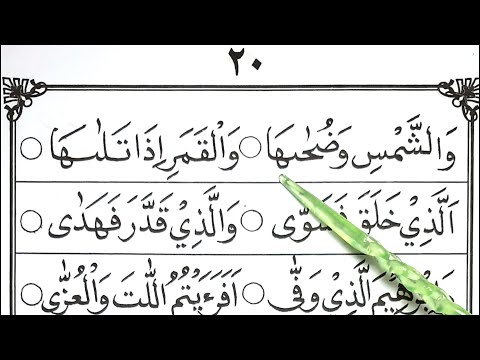 ٢٠
وَالشَّمْسِ وَضُحٰىهَا ○ وَالْقَمَرِ اِذَا تَلٰىهَا ○
اَلَّذِيْ خَلَقَ فَسَوّٰى ○ وَالَّذِيْ قَدَّرَ فَهَدٰى ○
الَّذِيْ وَفّٰى ○ اَفَرَءَيْتُمُ اللّٰتَ وَالْعُزّٰى ○